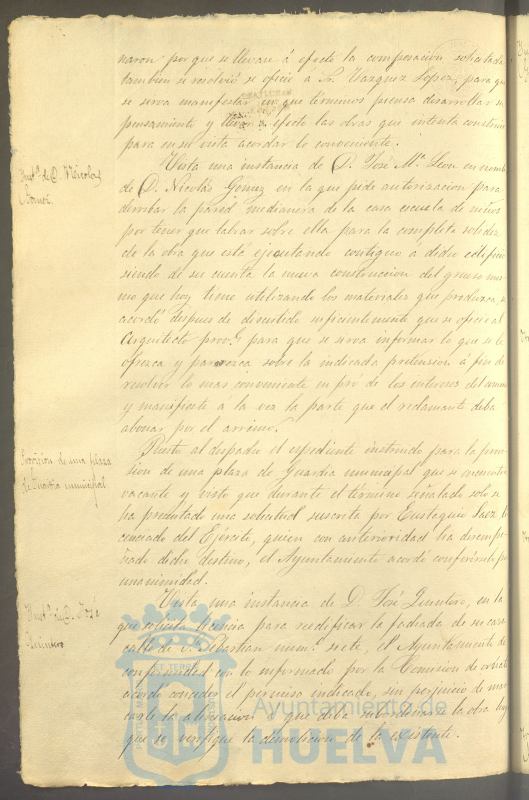 naron por que se llevase á efecto la composicion solicitada
tambien se resolvió se oficie á Sr. Vazquez Lopez, para que
se sirva manifestar en que términos piensa desarrollar su
pensamiento y llevar á efecto las obras que intenta construir
para en su vista acordar lo conveniente.
Inst.ª de D. Nicolas
Gomez.
Vista una instancia de D. José Mª Leon en nombre
de D. Nicolás Gomez en la que pide autorizacion para
derribar la pared medianera de la casa escuela de niños
por tener que labrar sobre ella para la completa solidez
de la obra que está ejecutando contiguo á dicho edificio
siendo de su cuenta la nueva construccion del grueso mis-
mo que hoy tiene utilizando los materiales que produzca, se
acordó despues de discutido suficientemente que se oficie al
Arquitecto prov.l para que se sirva informar lo que se le
ofrezca y parezca sobre la indicada pretension á fin de
resolver lo mas conveniente en pró de los intereses del comun
y manifieste á la vez la parte que el reclamante deba
abonar por el arrimo.
Provision de una plaza
de Guardia municipal
Puesto al despacho el espediente instruido para la provi-
sion de una plaza de Guardia municipal que se encuentra
vacante y visto que durante el término señalado solo se
ha presentado una solicitud suscrita por Eustaquio Saez li-
cenciado del Ejército, quien con anterioridad ha desempe-
ñado dicho destino, el Ayuntamiento acordó conferirsela por
unanimidad.
Inst.ª de D. José
Quintero
Vista una instancia de D. José Quintero, en la
que solicita licencia para reedificar la fachada de su casa
calle de S. Sebastian num.º siete, el Ayuntamiento de
conformidad con lo informado por la Comision de ornato
acordó conceder el permiso indicado, sin perjuicio de mar-
carle la alineacion á que deba subordinarse la obra luego
que se verifique la demolicion de la existente.
Ayuntamiento de
HUELVA